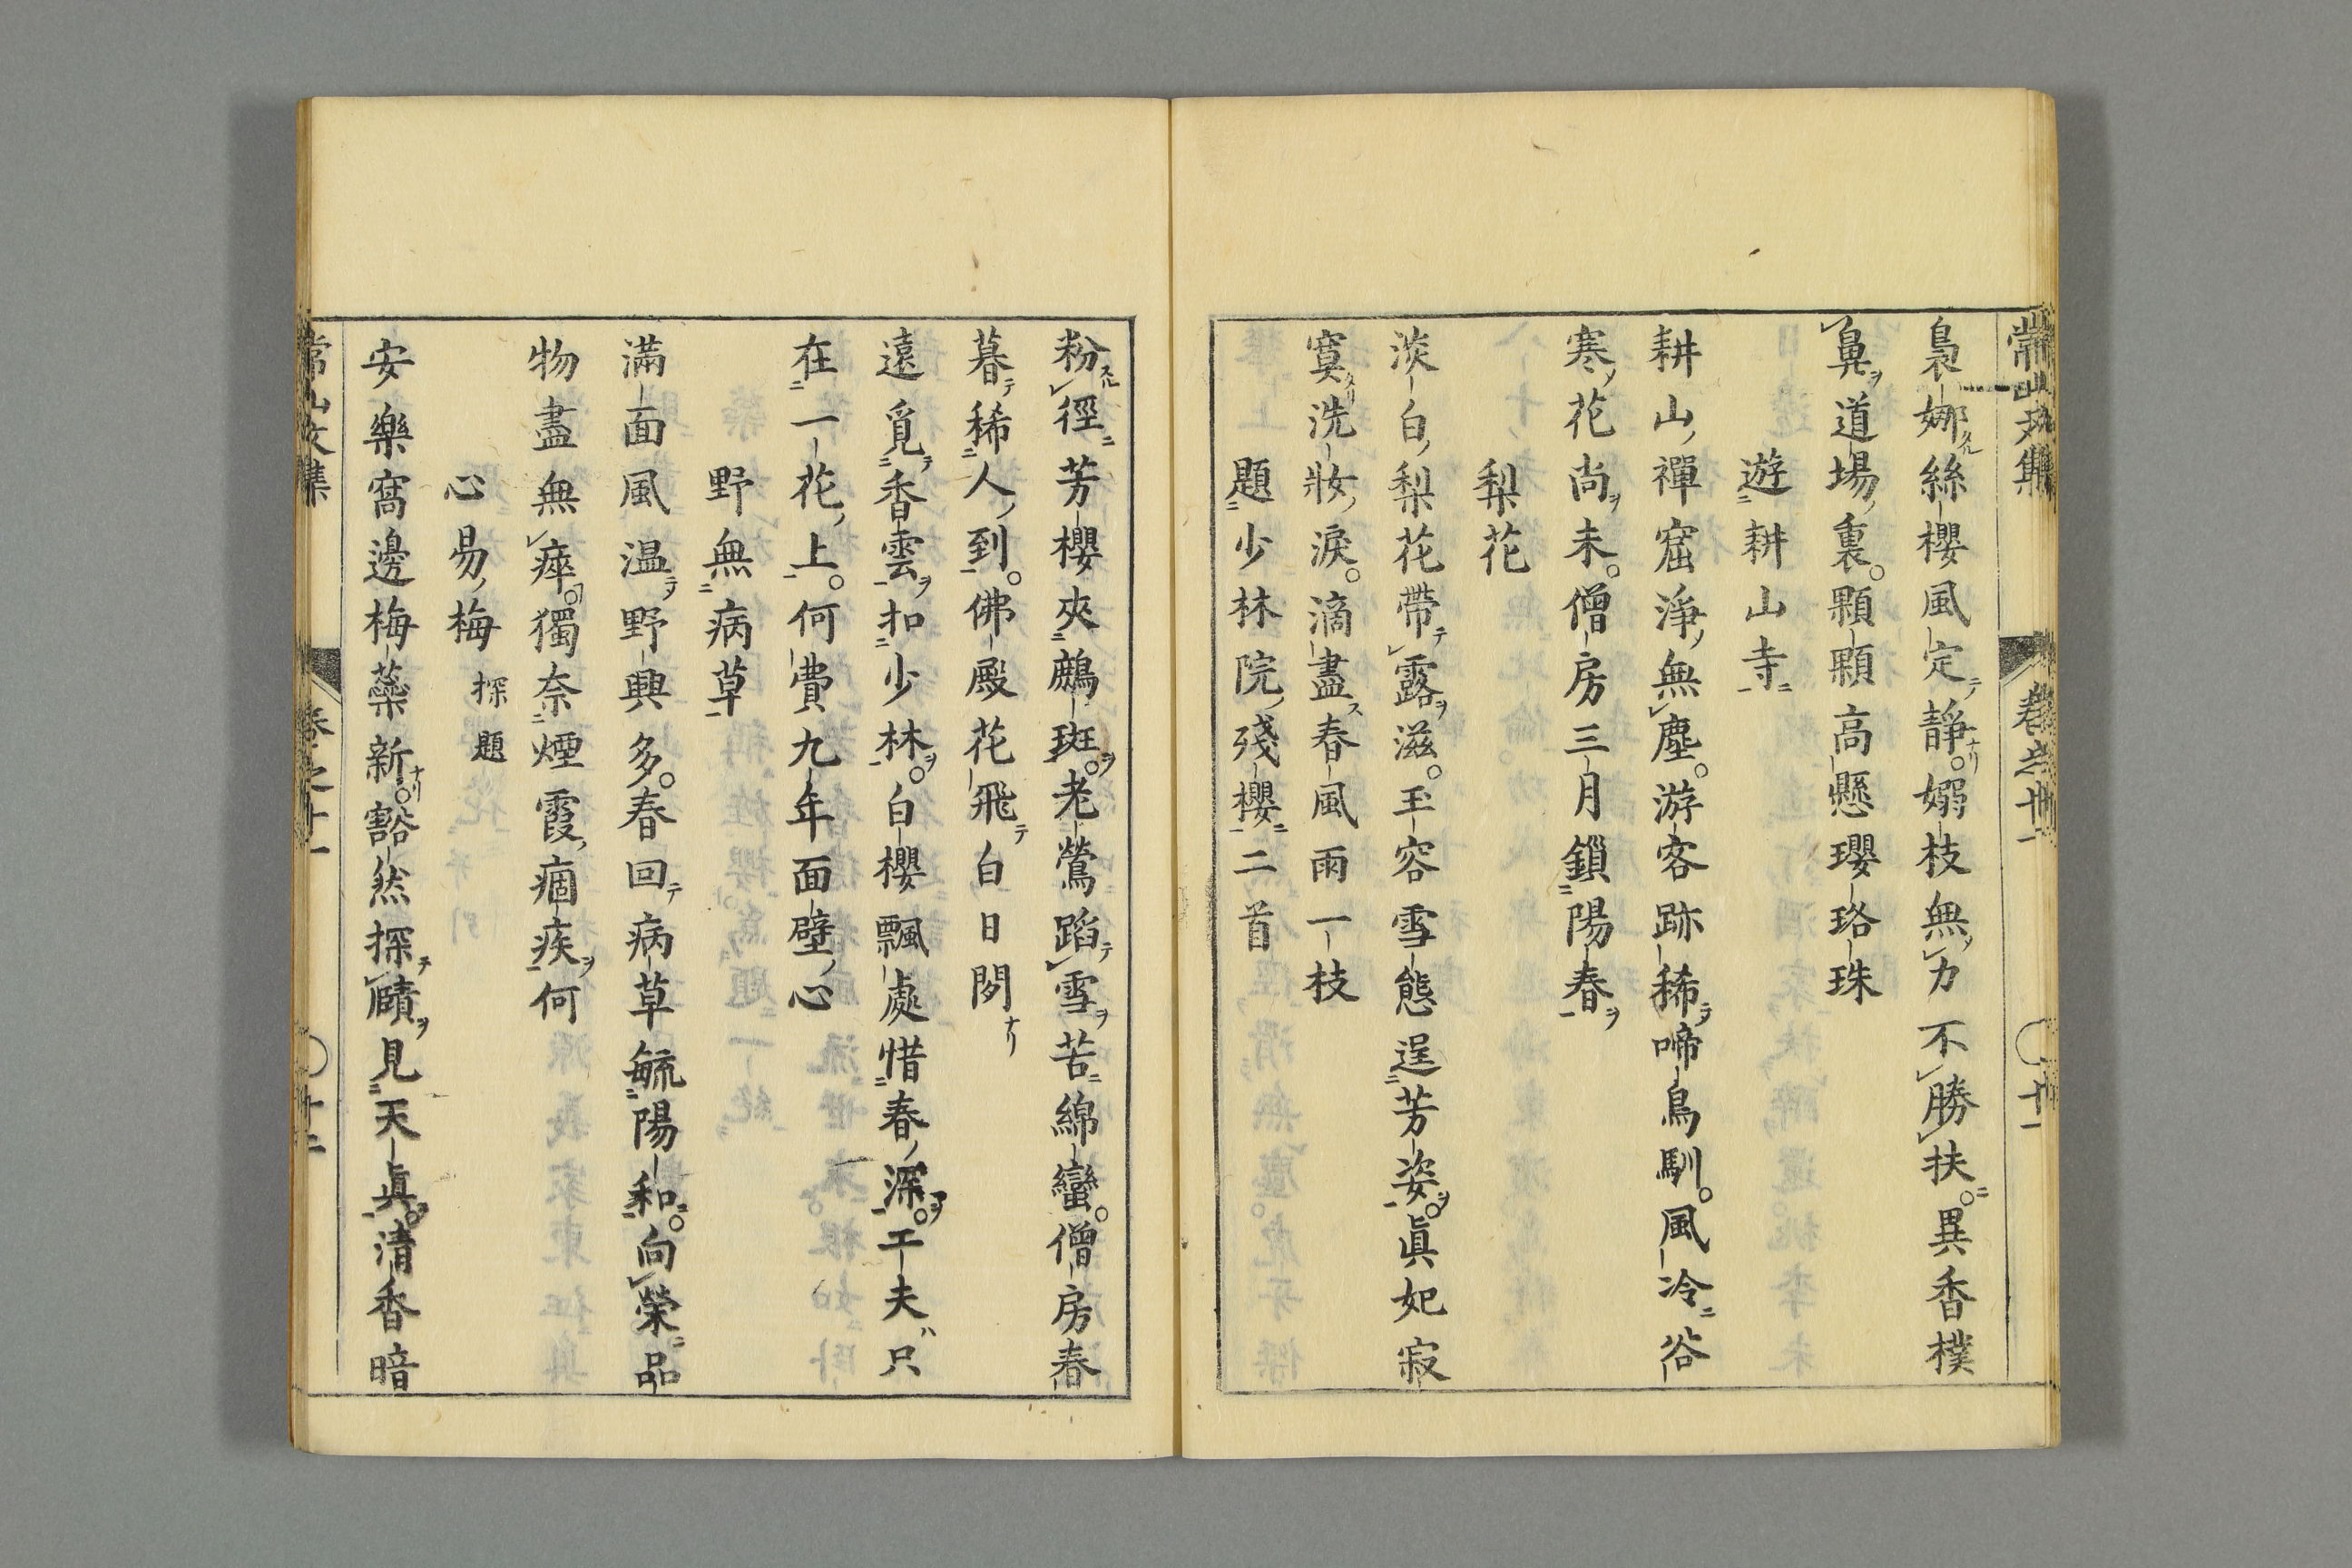 常山文集
卷之十一
〇十一
裊娜絲櫻風定靜。嫋枝無力不勝扶。異香撲
鼻道場裏。顆顆高懸瓔珞珠
遊耕山寺
耕山禪窟淨無塵。游客跡稀啼鳥馴。風冷谷
寒花尚未。僧房三月鎖陽春
梨花
淡白梨花帶露滋。玉容雪態逞芳姿。眞妃寂
寞洗妝淚。滴盡春風雨一枝
題少林院殘櫻二首
粉徑芳櫻夾鷓斑。老鶯蹈雪苦綿蠻。僧房春
暮稀人到。佛殿花飛白日閑
遠覓香雲扣少林。白櫻飄處惜春深。工夫只
在一花上。何費九年面壁心
野無病草
滿面風温野興多。春回病草毓陽和。向榮品
物盡無瘁。獨奈煙霞痼疾何
心易梅 探題
安樂窩邊梅蘂新。豁然探賾見天眞。清香暗
常山文集
卷之十一
〇十二